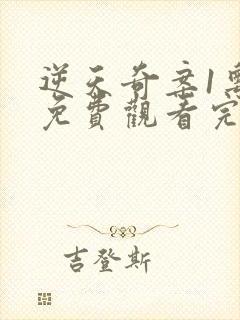 逆天奇案1
免費觀看完
吉登斯